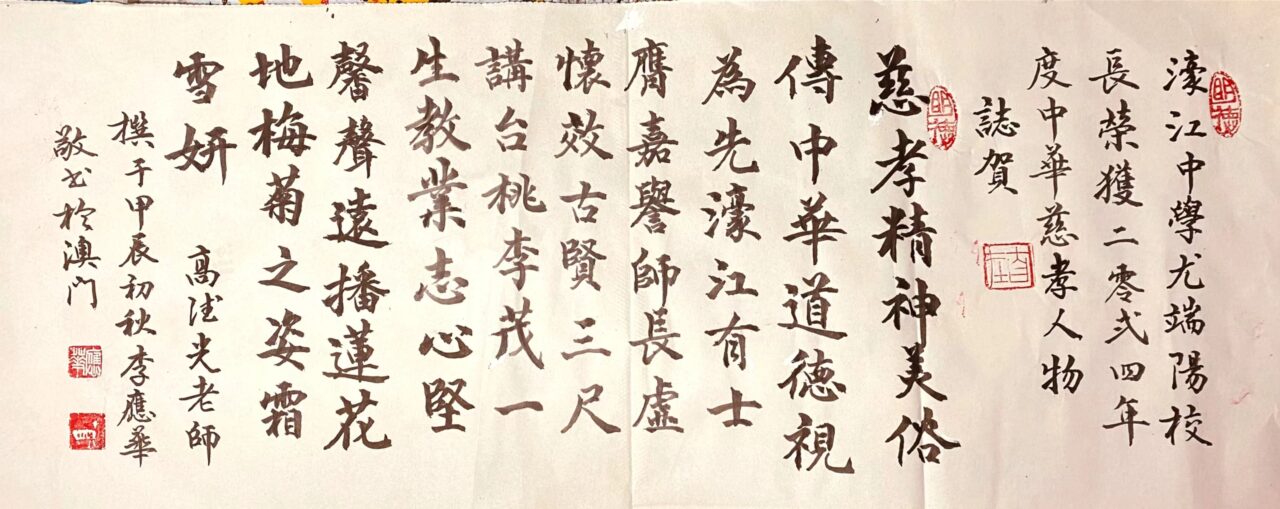 濠江中學尤端陽校
長榮獲二零弍四年
度中華慈孝人物
誌賀
慈孝精神美俗
傳中華道德視
為先濠江有士
膺嘉譽師長虛
懷效古賢三尺
講台桃李茂一
生教業志心堅
馨聲遠播蓮花
地梅菊之姿霜
雪妍
高法光老師
撰于甲辰初秋李應華
敬書於澳門
明德
明德
應華